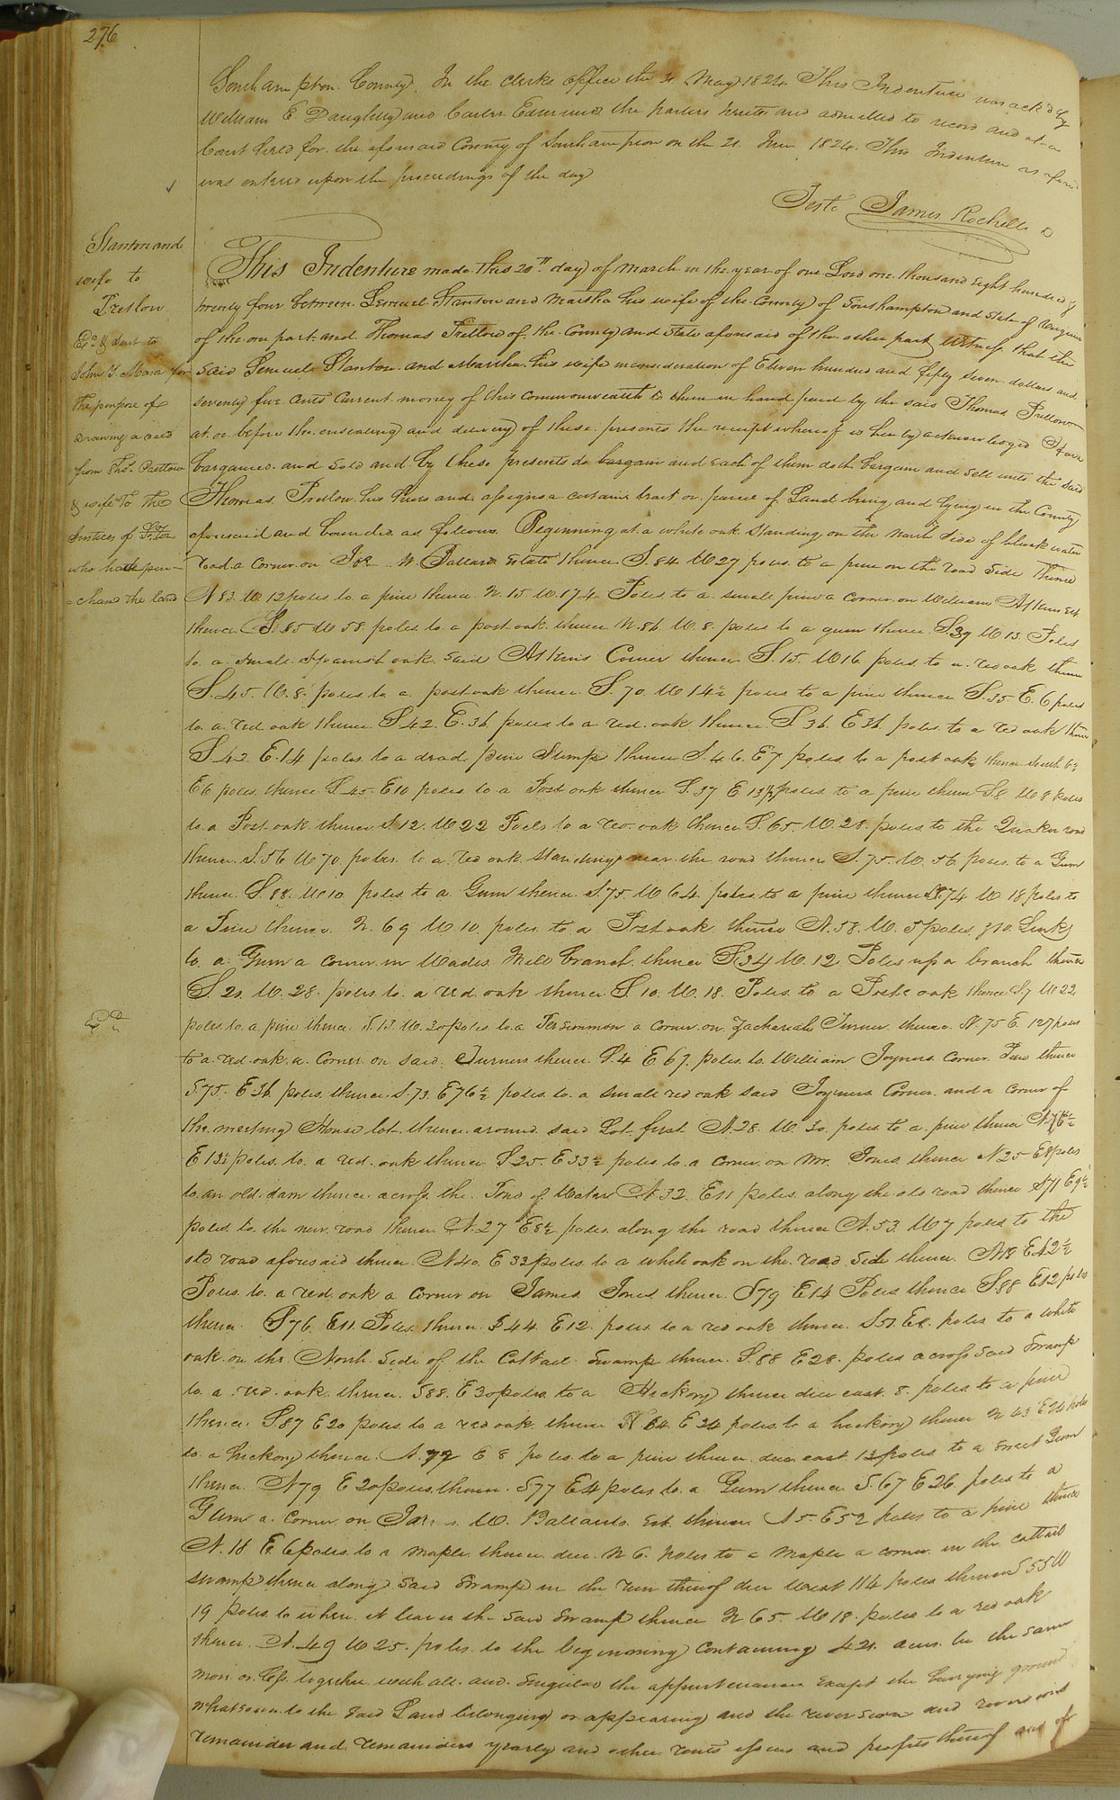 276
Southampton County. In the clerks office the 3 May 1824 This Indenture was ackd by
William E Daughtry and Carter Edmunds the parties hereto and admitted to record and at a
Court held for the aforesaid County of Southampton on the 21 June 1824. This Indenture as afore
was entered upon the proceedings of the day
Teste James Rochelle
Stanton and
wife to
Pretlow
Ed. & sent to
John Y. Mason for
the purpose of
drawing a deed
from Thos. Pretlow
& wife to the
Justices of
who have pur-
-chased the land
This Indenture made this 20th day of March in the year of our Lord one thousand eight hundred &
twenty four between Lemuel Stanton and Martha his wife of the County of Southampton and state of Virginia
of the one part and Thomas Pretlow of the County and State aforesaid of the other part Witness that the
said Lemuel Stanton and Martha his wife in consideration of Eleven hundred and fifty seven dollars and
seventy five cents Current money of this commonwealth to them in hand paid by the said Thomas Pretlow
at or before the ensealing and delivery of these presents the receipt whereof is hereby acknowledged Have
bargained and sold and by these presents do bargain and each of them doth bargain and sell unto the said
Thomas Pretlow his heirs and assigns a certain tract or parcel of Land being and lying in the County
aforesaid and bounded as follows Beginning at a white oak standing on the North Side of black water
road a corner on W. Ballard estate thence S. 84 W 27 poles to a pine on the road side thence
N 83 W 12 poles to a pine thence N. 15 W. 174 Poles to a small pine a corner on William Atkins Est
thence S 85 W 58 poles to a post oak thence N. 86 W. 8 poles to a gum thence S. 39 W 13 Poles
to a small Spanish oak said Atkins Corner thence S. 15. W 16 poles to a red oak thence
S. 45. W. 8. poles to a post oak thence S. 70. W 14½ poles to a pine thence S. 35 E. 6 poles
to a red oak thence S 42 E. 36 poles to a red oak thence S 36 E 36 poles to a red oak thence
S 42 E. 14 poles to a dead pine Stump thence S. 46. E 7 poles to a post oak thence South 62
E 6 poles thence S 45 E 10 poles to a Post oak thence S. 37 E 13½ poles to a pine thence S 8 W 8 poles
to a Post oak thence S 12. W 22 Poles to a red oak thence S. 65 W. 28. poles to the Quaker road
thence S. 56 W 70 poles to a red oak standing near the road thence S. 75. W. 56 poles to a Gum
thence S. 88. W 10 poles to a Gum thence S. 75 W 64 poles to a pine thence S 74 W 18 poles to
a Pine thence N. 69 W 10 poles to a Post oak thence N. 58. W. 5 poles & 10 Links
to a Gum a corner in Wades Mill branch thence S 34 W. 12 Poles up a branch thence
S. 20. W. 28. poles to a red oak thence S. 10. W. 18. Poles to a Post oak thence S 7 W 22
poles to a pine thence S. 13. W. 20 poles to a Persimmon a corner on Zachariah Turner thence N. 75 E 127 poles
to a red oak a Corner on said Turner thence S. 4 E 67. poles to William Joyners Corner Pine thence
S 75. E 36 poles thence S. 73. E 76½ poles to a small red oak said Joyners Corner and a corner of
the meeting House lot thence around said Lot first N. 28. W. 30. poles to a pine thence N. 76½
E 13½ poles to a red oak thence S 25. E 33½ poles to a corner on Mr. Jones thence N 25 E 8 poles
to an old dam thence across the Pond of Water N. 32. E 11 poles along the old road thence N 71 E 9½
poles to the new road thence N. 27 E 8½ poles along the road thence N. 53 W 7 poles to the
old road aforesaid thence N 40. E 32 poles to a white oak on the road side thence N 18 E 42½
Poles to a red oak a corner on James Jones thence S 79 E 14 Poles thence S 88 E 12 poles
thence S 76. E 11. Poles thence S 44. E 12. poles to a red oak thence S 57. E 8. poles to a white
oak on the North Side of the Cattail Swamp thence S. 88 E 28. poles across said Swamp
to a red oak thence S 88. E 30 poles to a Hickory thence due east 8 poles to a pine
thence S. 87 E 20 poles to a red oak thence N 64 E 34 poles to a hickory thence N 43 E 24 poles
to a hickory thence N. 77 E 8 poles to a pine thence due east 12 poles to a sweet Gum
thence N 79 E 20 poles thence S 77 E 4 poles to a Gum thence S. 67 E 26. poles to a
Gum a corner on W. Ballards Est thence N 5 E 52 poles to a pine thence
N. 18 E. 6 poles to a maple thence due N 6. poles to a Maple a corner in the cattail
swamp thence along said swamp in the run thereof due West 114 poles thence S 55 W
19 poles to where it leaves the said swamp thence N 65 W 18. poles to a red oak
thence N. 49 W 25. poles to the beginning Containing 421 acres be the same
more or less together with all and singular the appurtenances Except the burying ground
whatsoever to the said Land belonging or appearing and the reversion and reversions
remainder and remainders yearly and other rents issues and profits thereof and of